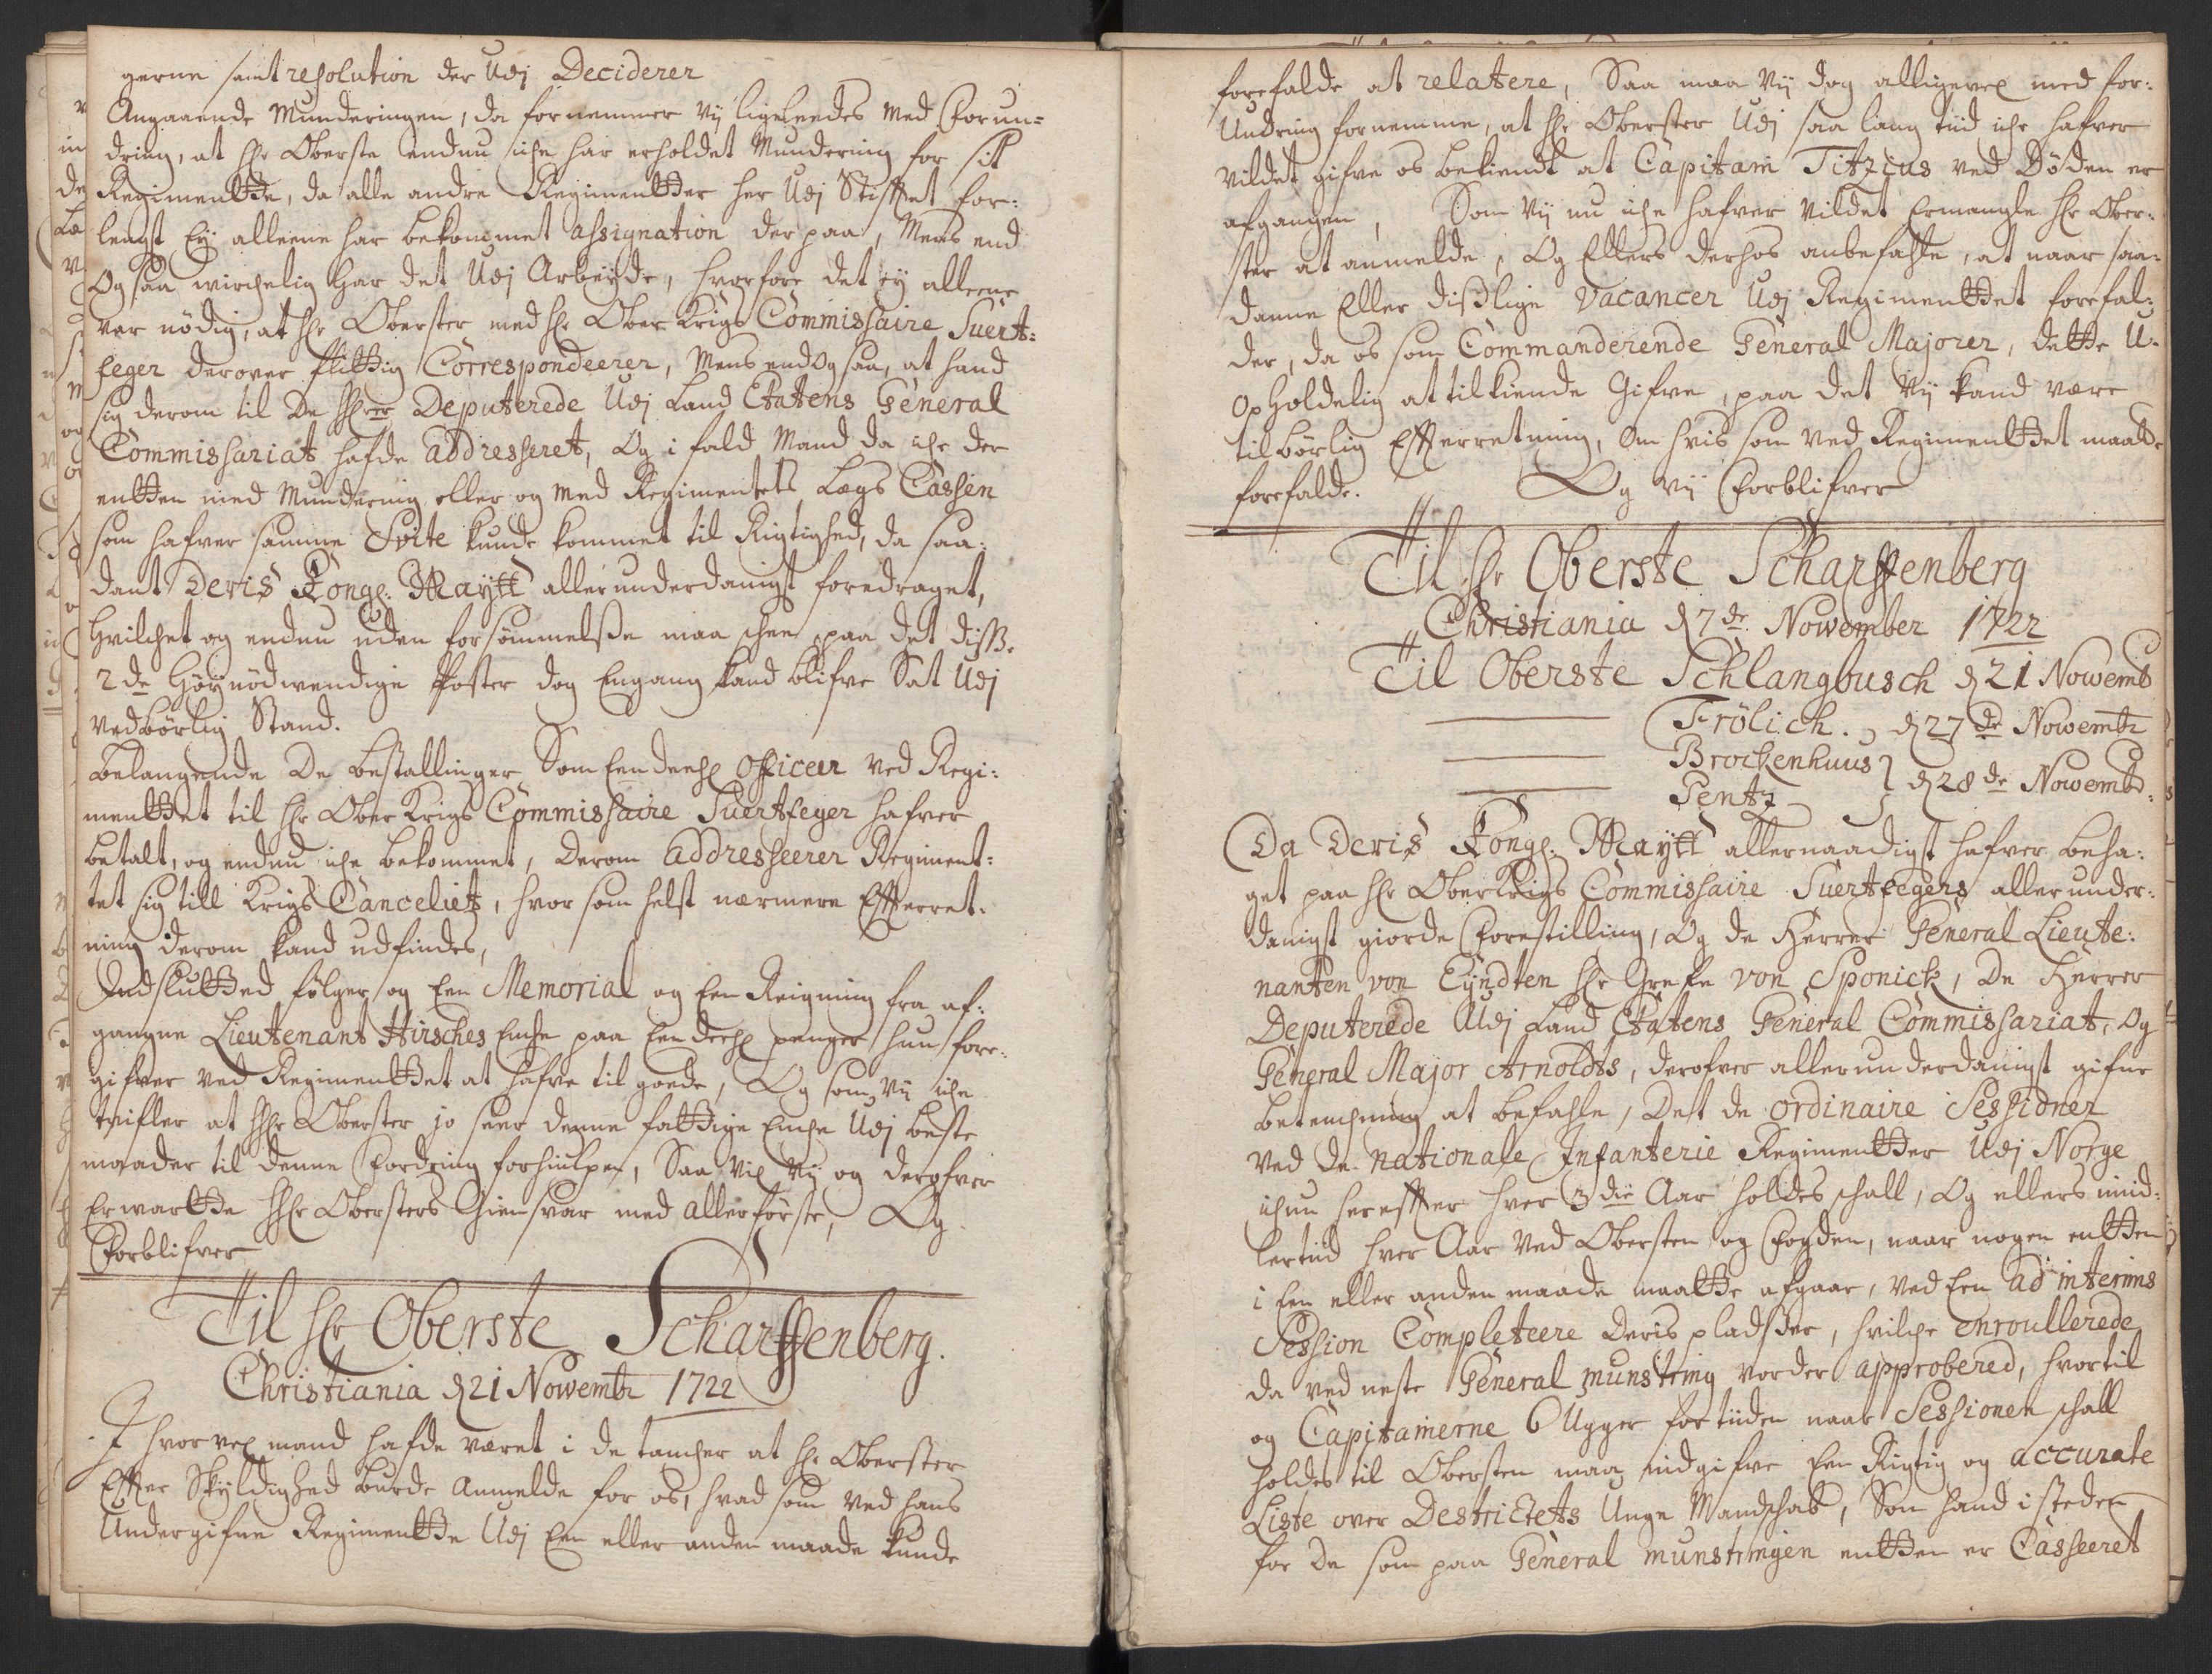 gerne samt resolution der Udj Deciderer
Angaaende Munderingen, da fornemmer Vij ligeleedes Med Forun=
dring, at Hr Oberste endnu iche har erholdet Mundering for sit
Regimentte, da alle andre Regimentter her Udj Stifftet for:
lengst Eÿ alleene har bekommet assignation der paa, Mens end
Og saa wirchelig Har det Udj Arbeÿde, hvorfore det eÿ alleene
var nödig, at Hr Oberster med Hr Ober Krigs Commissaire Suert:
feger derover flittig Correspondeerer, Mens end Og saa, at hand
sig derom til De Hrer Deputerede Udj Land Etatens General
Commissariat hafde addresseret, Og i fald Mand da iche der
entten med Mundering eller og med Regimentets Lægs Cassen
som hafver samme Svite kunde kommet til Rigtighed, da saa:
dant Deris Kongl: Maytt allerunderdanigst foredraget,
Hvilchet og endnu uden forsömmelsse maa schee, paa det disse
2de Höÿnödwendige Poster dog Engang kand blifve Sat Udj
vedbörlig Stand.
Belangende De Bestallinger Som Een deehl Officeer ved Regi:
menttet til Hr Ober Krigs Commissaire Suertfeger hafver
betalt, og endnu iche bekommet, Derom Addresseerer Regiment:
tet sig till Krigs Canceliet, hvor som helst nermere Efterret:
ning derom kand udfindes,
Indslutted fölger og Een Memorial og Een Reigning fra af:
gangne Lieutenant Hirsches Enche paa Een deehl penger hun fore:
gifver ved Regimenttet at hafve til goede, Og som Vij iche
tvifler at Hr Oberster jo seer denne fattige Enche Udj beste
maader til denne Fordring forhiulpen, Saa vil Vij og derofver
Erwartte Hr Obersters Giensvar med allerförste, Og
Forblifver
Til Hr Oberste Scharffenberg.
Christiania d 21 Nowembr 1722
I hvorvel mand hafde været i de tancher at Hr Oberster
Efter Skÿldighed burde Anmelde for os, hvad som ved hans
Undergifne Regimentte Udj Een eller anden maade kunde
forefalde at relatere, Saa maa Vij dog alligevel med for:
Undring fornemme, at Hr Oberster Udj saa lang tiid iche hafver
vildet gifve os bekiendt at Capitain Titzius ved Döden er
afgangen, Som Vij nu iche hafver vildet Ermangle Hr Ober:
ster at anmelde, Og Ellers derhos anbefahle, at naar saa:
danne Eller disslige Vacancer Udj Regimenttet forefal:
der, da os som Commanderende General Majorer, dette U:
opholdelig at tilkiende Gifve, paa det Vij kand være
tilbörlig Efterretning, Om hvis som ved Regimenttet maatte
forefalde. Og Vij Forblifver
Til Hr Oberste Scharffenberg
Christiania d 7de Nowember 1722
Til Oberste Schlangbusch d 21 Nowemb
Frölich. d 27de Nowembr
Brockenhuus } d 28de Nowemb:
Pentz
Da Deris Kongl: Maytt allernaadigst hafver beha:
get paa Hr Ober Krigs Commissaire Suertfegers allerunder:
danigst giorde Forestilling, Og de Herrer General Lieute:
nanten von Eÿndten Hr Grefe von Sponick, De Herrer
Deputerede Udj Land Etatens General Commissariat, Og
General Major Arnoldts, derofver allerunderdanigst gifne
betenchning at befahle, Dett de ordinaire Sessioner
Ved de nationale Infanterie Regimentter Udj Norge
ichun herefter hver 3die Aar holdes schall, Og ellers imid:
lertiid hver Aar Ved Obersten og Fogden, naar nogen entten
i Een eller anden maade maatte afgaae, ved Een ad interims
Session Completeere Deris pladtser, hvilche enroullerede
da ved neste General munstring vorder approbered, hvortil
og Capitainerne 6 Uger for tiiden naar Sessionen schall
holdes til Obersten maa indgifve Een Rigtig og accurate
Liste over Destrictets Unge Mandschab, Som hand i steden
for De som paa General munstringen entten er Casseeret